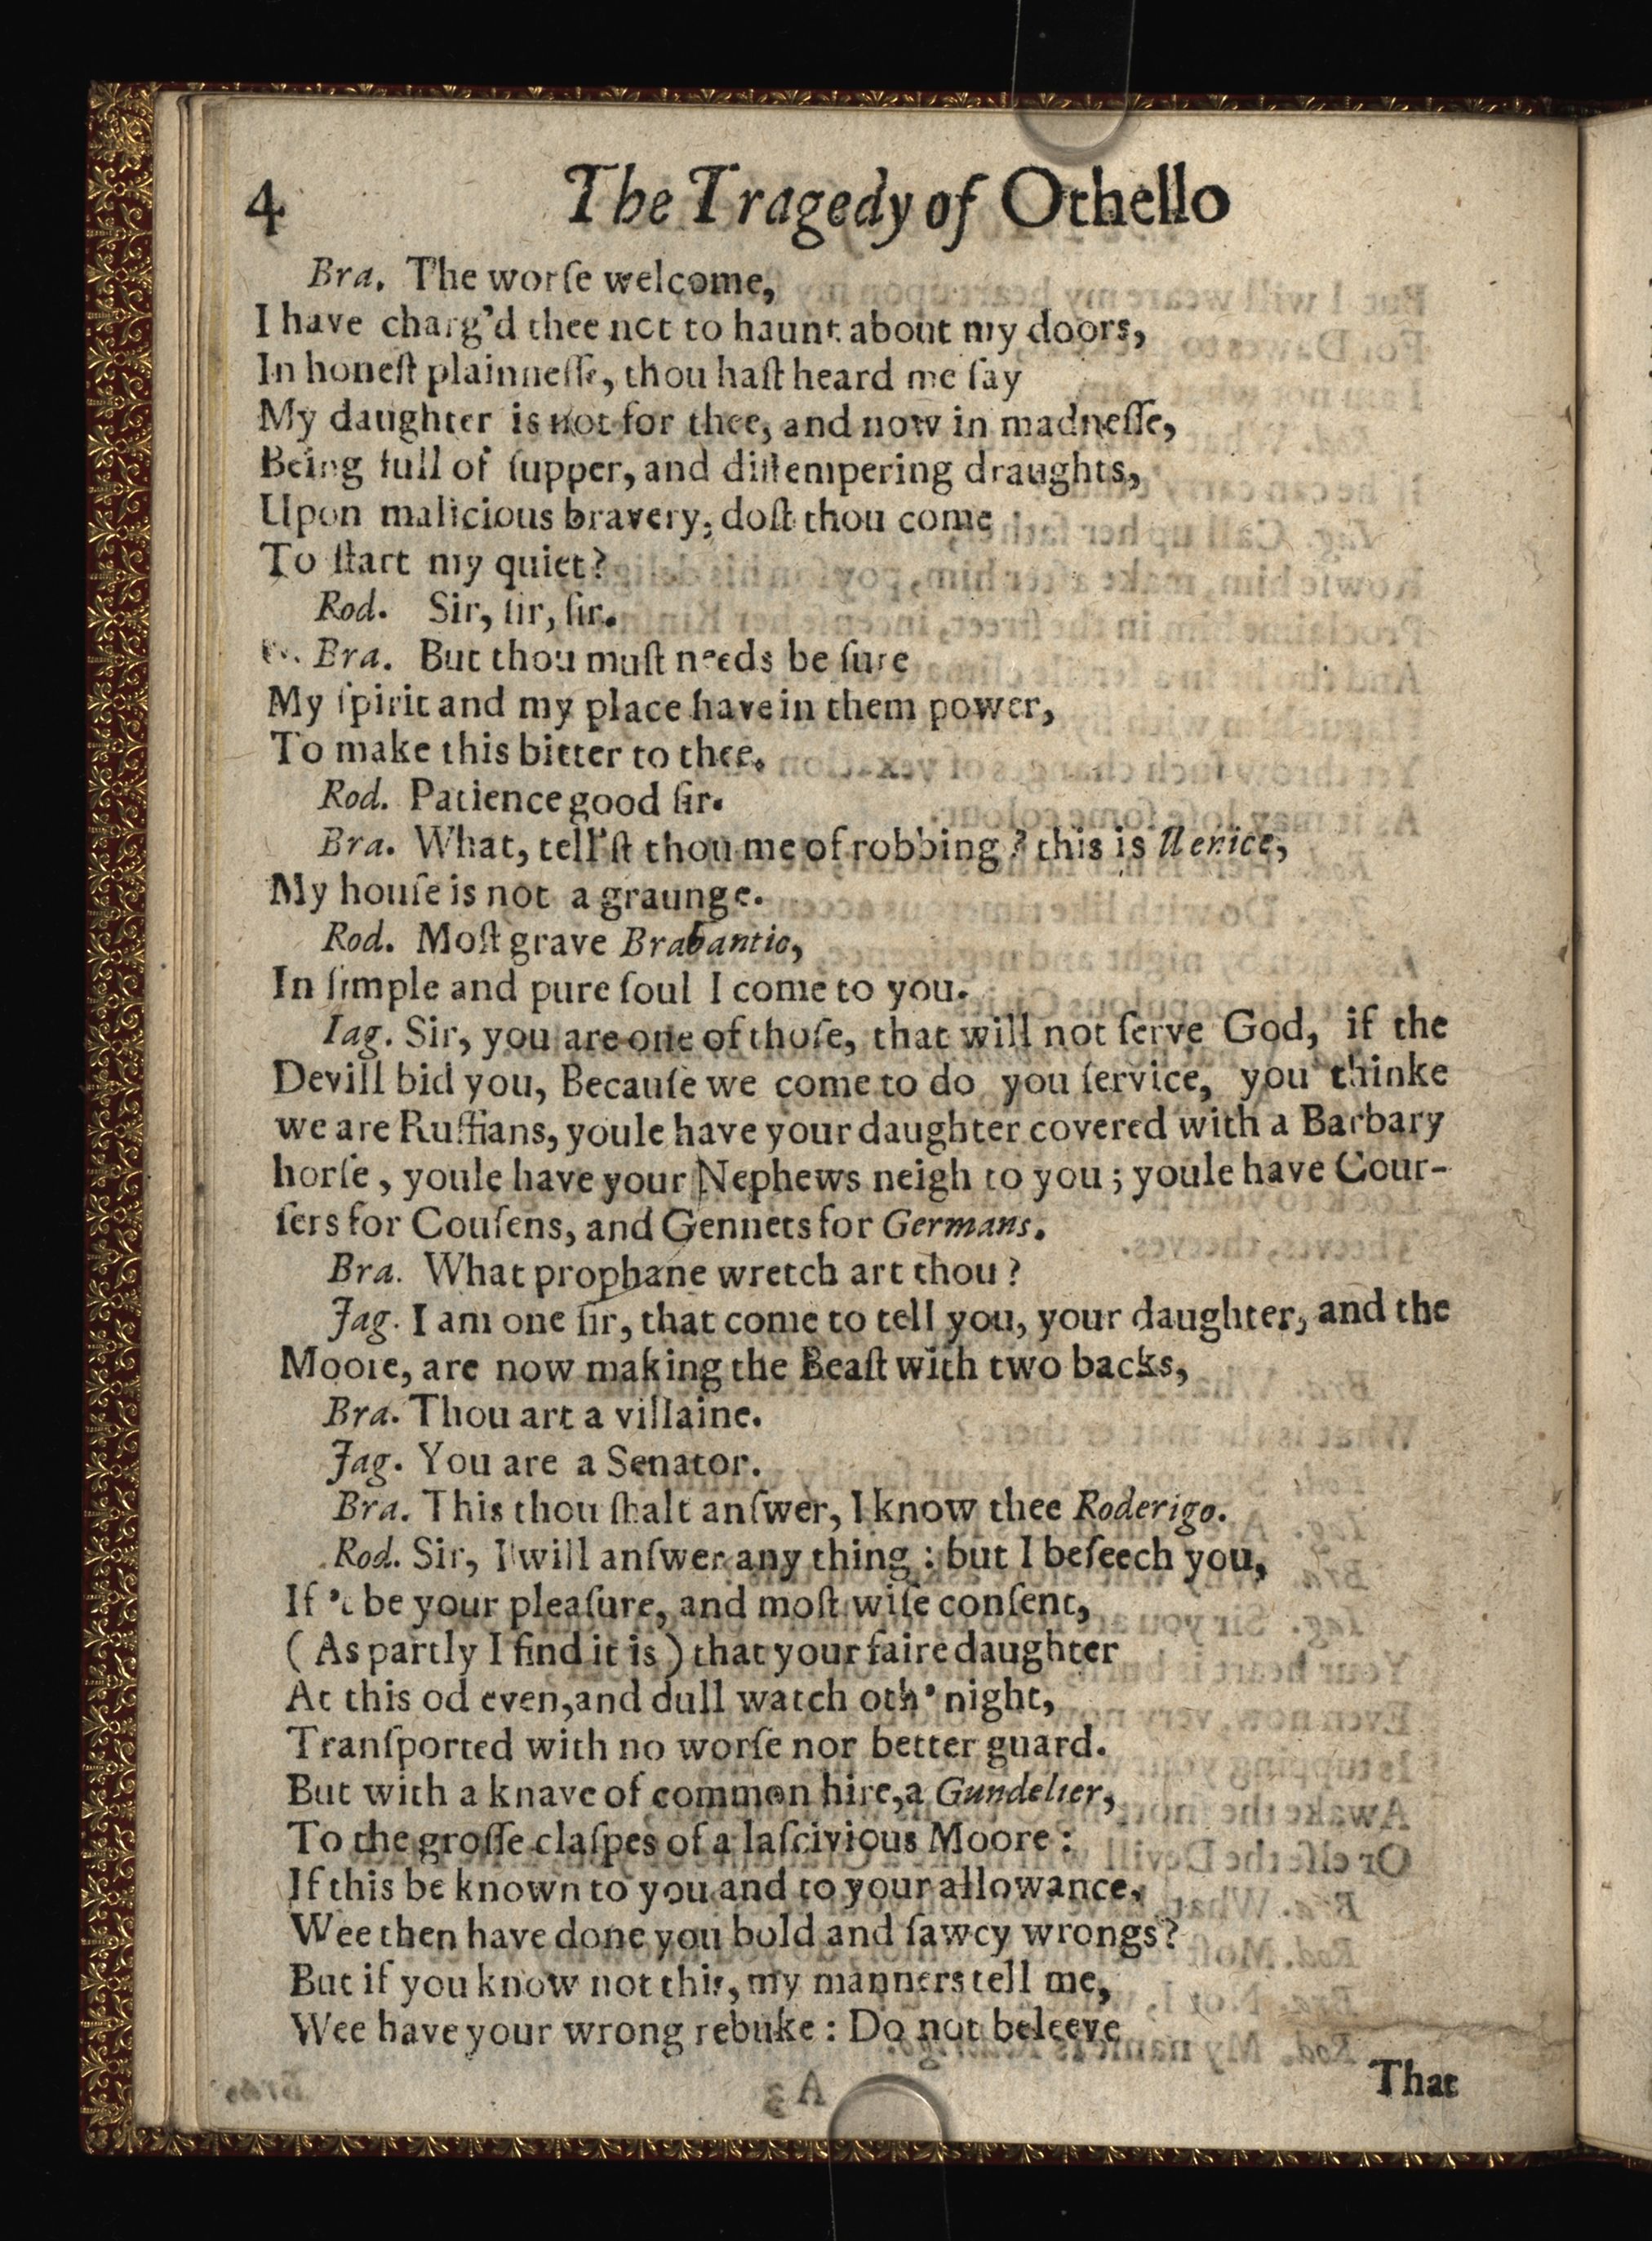 4 The Tragedy of Othello
Bra. The worſe welcome,
I have charg'd thee not to haunt about my doors,
In honeſt plainneſſe, thou haſt heard me ſay
My daughter is not for thee, and now in madneſſe,
Being full of ſupper, and diſtempering draughts,
Upon malicious bravery, doſt thou come
To ſtart my quiet?
Rod. Sir, ſir, ſir.
Bra. But thou muſt needs be ſure
My ſpirit and my place have in them power,
To make this bitter to thee.
Rod. Patience good ſir.
Bra. What, tell'ſt thou me of robbing? this is Venice,
My houſe is not a graunge.
Rod. Moſt grave Brabantio,
In ſimple and pure ſoul I come to you.
Iag. Sir, you are one of thoſe, that will not ſerve God, if the
Devill bid you, Becauſe we come to do you ſervice, you thinke
we are Ruffians, youle have your daughter covered with a Barbary
horſe, youle have your Nephews neigh to you; youle have Cour-
ſers for Couſens, and Gennets for Germans.
Bra. What prophane wretch art thou?
Jag. I am one ſir, that come to tell you, your daughter, and the
Moore, are now making the Beaſt with two backs,
Bra. Thou art a villaine.
Jag. You are a Senator.
Bra. This thou ſhalt anſwer, I know thee Roderigo.
Rod. Sir, I will anſwer any thing : but I beſeech you,
If 't be your pleaſure, and moſt wiſe conſent,
( As partly I find it is ) that your faire daughter
At this od even,and dull watch oth' night,
Tranſported with no worſe nor better guard.
But with a knave of common hire,a Gundelier,
To the groſſe claſpes of a laſcivious Moore :
If this be known to you and to your allowance,
Wee then have done you bold and ſawcy wrongs?
But if you know not this, my manners tell me,
Wee have your wrong rebuke : Do not beleeve
That